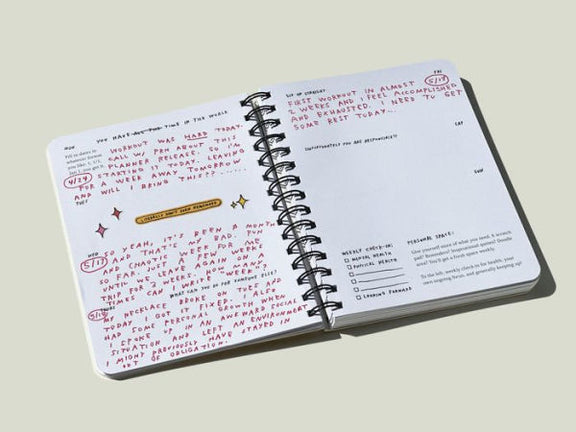 YOU HAVE TIME IN THIS WORLD
MON
Fill in dates in
whatever format
you like. 1, 1/1,
Jan 1, you get it.
WORKOUT WAS HARD TODAY.
CALL W/ PRH ABOUT THIS
PLANNER RELEASE. SO I'M
4/29 STARTING IT TODAY. LEAVING
FOR A WEEK AWAY TOMORROW
AND WILL I BRING THIS?
TUES
LITERALLY DON'T EVEN REMEMBER
WED
5/17
SO YEAH, IT'S BEEN A MONTH
AND THAT'S MY BAD. FUN
AND CHAOTIC WEEK FOR ME
SO FAR. JUST A FEW WEEKS
TRIP FOR 2 WEEKS. HOW MANY
TIMES CAN I WRITE "WEEK"?
WHAT CAN YOU DO FOR SOMEONE ELSE?
THURS
MY NECKLACE BROKE ON TUES AND
TODAY I GOT IT FIXED. I ALSO
HAD SOME PERSONAL GROWTH WHEN
I SPOKE UP IN AN AWKWARD SOCIAL
SITUATION AND LEFT AN ENVIRONMENT
I MIGHT PREVIOUSLY HAVE STAYED IN
OUT OF OBLIGATION.
SIT UP STRAIGHT
FRI
5/19
FIRST WORKOUT IN ALMOST
2 WEEKS AND I FEEL ACCOMPLISHED
AND EXHAUSTED. I NEED TO GET
SOME REST TODAY...
SAT
UNFORTUNATELY YOU ARE RESPONSIBLE
SUN
WEEKLY CHECK-IN:
MENTAL HEALTH
PHYSICAL HEALTH
LOOKING FORWARD
PERSONAL SPACE:
Give yourself more of what you need. A scratch
pad? Reminders? Inspirational quotes? Doodle
area? You'll get a fresh space weekly.
To the left, weekly check-in for health, your
own ongoing focus, and generally keeping up!